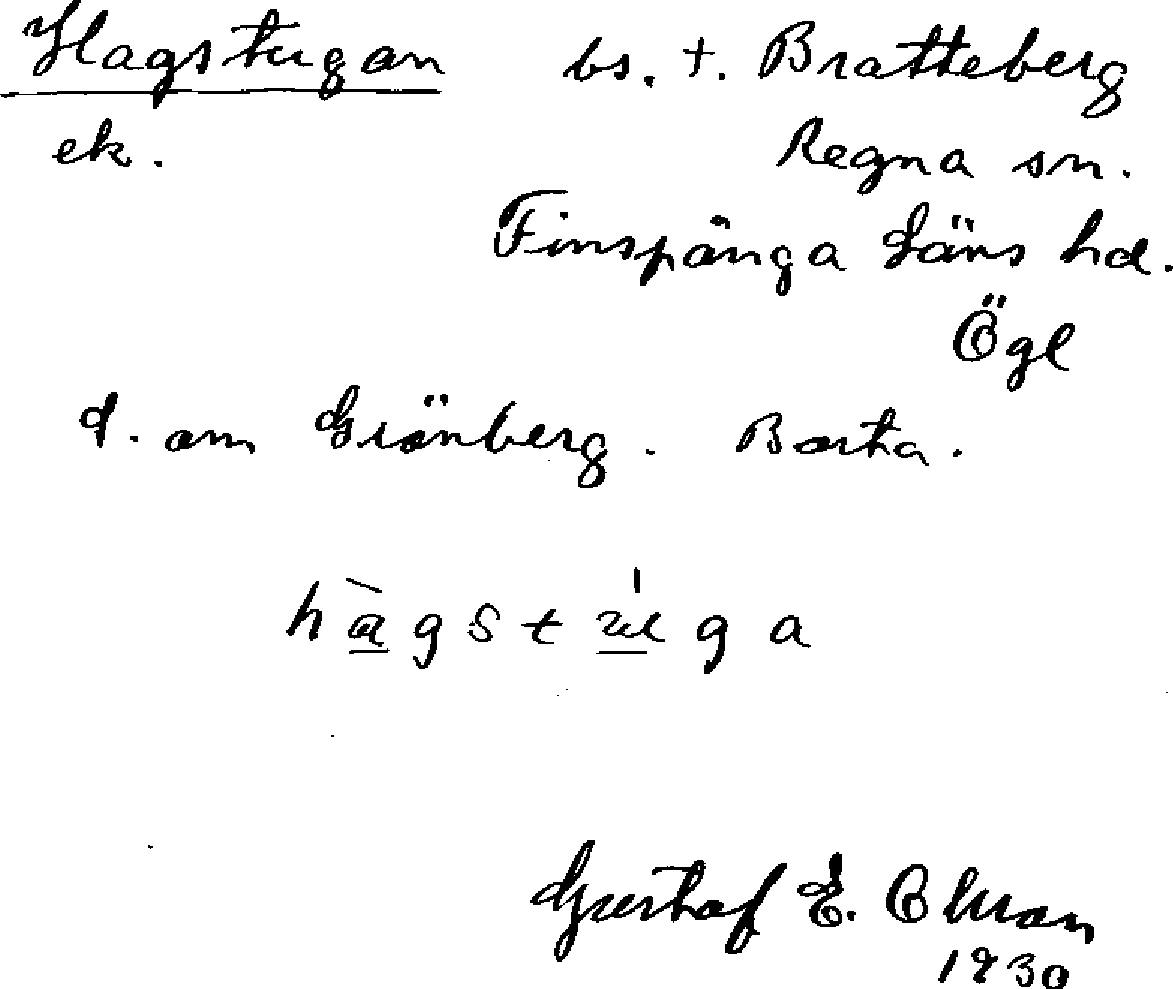 Hagstugan bs. t. Bratteberg
ek. Regna sn.
Finspånga Läns hd.
Ögl
d. om Grönberg. Borta.
hàgstúga
Gustaf E. Olsson
1930